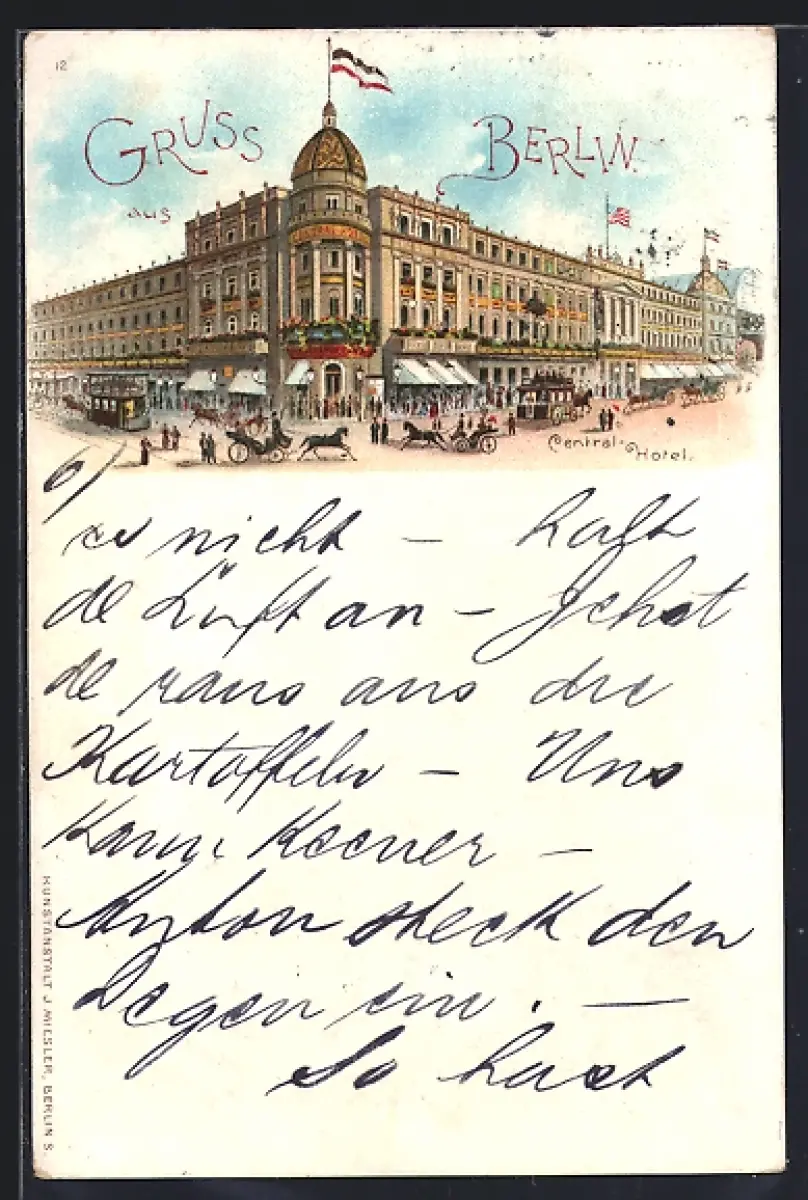 12
GRUSS
aus
BERLIN.
CENTRAL-HOTEL
Central-Hotel.
6/
es nicht – halt
de Luft an – Jehst
de raus aus die
Kartoffeln – Uns
kann Keener –
Anton steck den
Degen ein. –
So hast
KUNSTANSTALT J. MIESLER, BERLIN S.